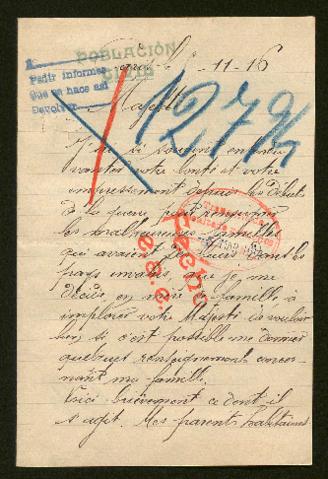 POBLACIÓN
CIVIL
Pedir informes
que se hace así
Devolver
11-16
Majesté
1279½
J'ai si souvent entendu
vanter votre bonté et votre
empressement depuis les débuts
de la guerre pour renseigner
les malheureuses familles
qui avaient des leurs dans les
pays envahis, que je me
décide, au nom de ma famille, à
implorer votre Majesté de vouloir
bien, si c'est possible me donner
quelques renseignements concer-
nant ma famille.
Voici brièvement ce dont il
s'agit. Mes parents habitaient